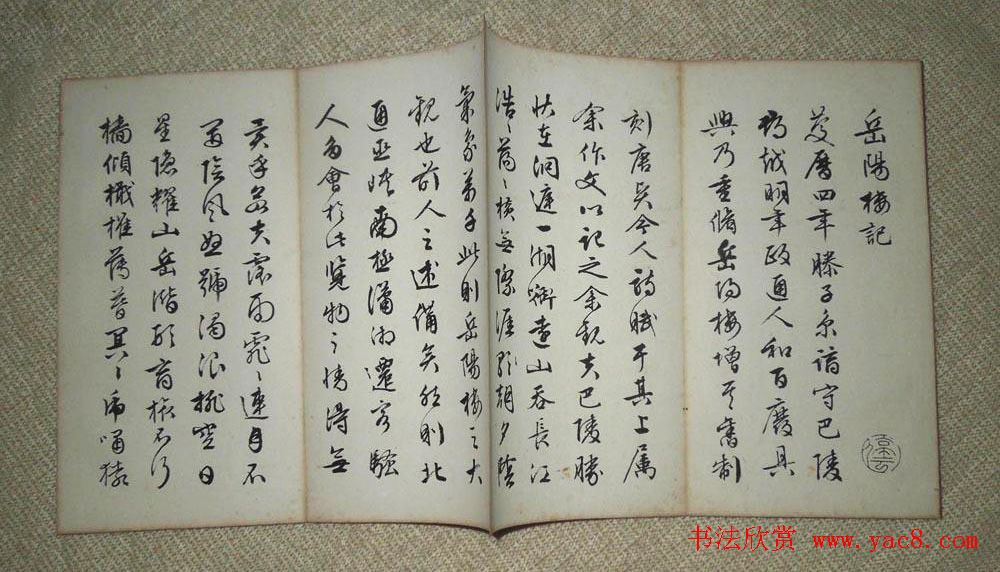 岳陽樓記
慶曆四年滕子京謫守巴陵
郡越明年政通人和百廢具
興乃重脩岳陽樓增其舊制
刻唐賢今人詩賦于其上屬
余作文以記之余觀夫巴陵勝
狀在洞庭一湖銜遠山吞長江
浩〻蕩〻橫無際涯朝夕陰
氣象萬千此則岳陽樓之大
觀也前人之述備矣然則北
通巫峽南極瀟湘遷客騷
人多會於此覽物之情得無
異乎若夫霪雨霏〻連月不
開陰風怒號濁浪排空日
星隱耀山岳潛形商旅不行
檣傾檝摧薄暮冥〻虎嘯猿
书法欣赏 www.yac8.com